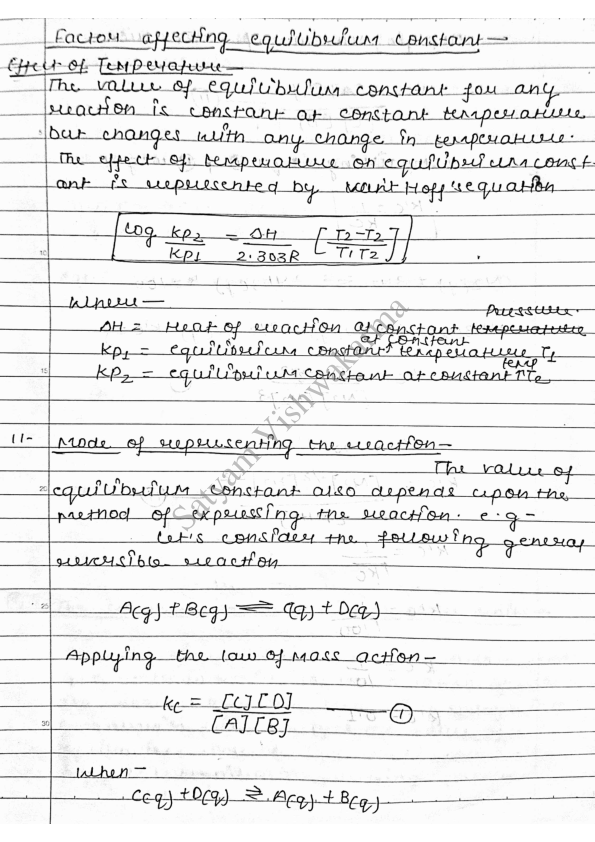 Factor affecting equilibrium constant-
Effect of Temperature-
The value of equilibrium constant for any
reaction is constant at constant temperature
but changes with any change in temperature.
The effect of temperature on equilibrium const-
ant is represented by Vant Hoff's equation
log Kp2/Kp1 = ΔH/2.303R [T2-T2/T1T2]
10
Where-
Pressure.
ΔH = Heat of reaction at constant temperature
at constant
Kp1 = equilibrium constant↑ temperature T1
temp
15
Kp2 = equilibrium constant at constant ↑T2
11- Mode of representing the reaction-
The value of
20
equilibrium constant also depends upon the
method of expressing the reaction. e.g-
Let's consider the following general
reversible reaction
25
A(g) + B(g) ⇌ C(g) + D(g)
Applying the law of Mass action-
Kc = [C][D]/[A][B] —— ①
30
When-
C(g) + D(g) ⇌ A(g) + B(g)
Satyam Vishwakarma